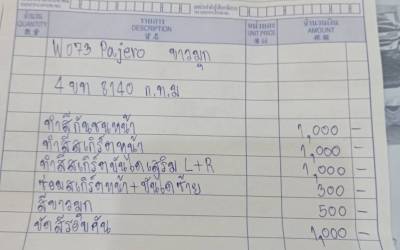 จำนวน รายการ หน่วยละ จำนวนเงิน
QUANTITY DESCRIPTION UNIT PRICE AMOUNT
W073 Pajero ขาวมุก
4 ขท 8140 ก.ท.ม
ทำสีกันชนหน้า 1,000 -
ทำสีสเกิร์ตหน้า 1,000 -
ทำสีสเกิร์ตบันไดเสริม L+R 1,000 -
ซ่อมสเกิร์ตหน้า + บันไดซ้าย 300 -
สีขาวมุก 500 -
ขัดสีรอบคัน 1,000 -